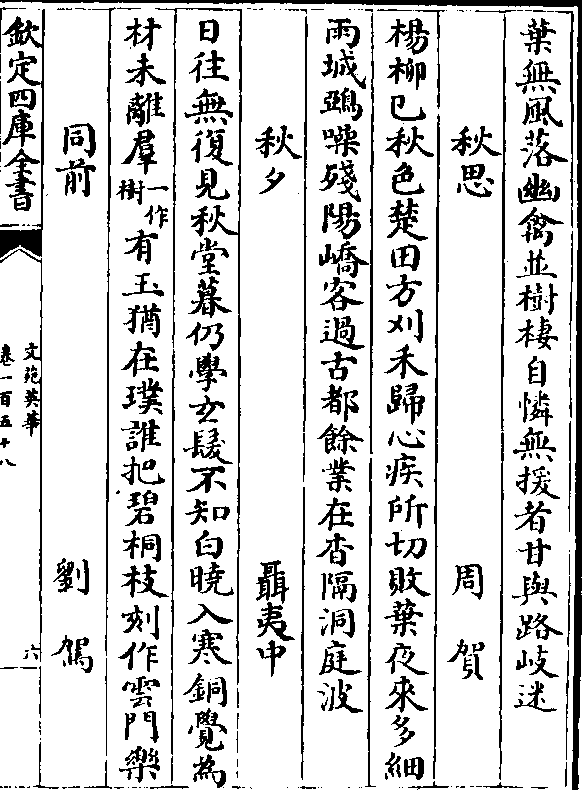 葉無風落幽禽並樹棲自憐無援者甘與路岐迷
秋思 周賀
楊柳已秋色楚田方刈禾歸心疾所切敗葉夜來多細
雨城鵶噪殘陽嶠客過古都餘業在杳隔洞庭波
秋夕 聶夷中
日往無復見秋堂暮仍學玄髮不知白曉入寒銅覺為
材未離羣一作樹有玉猶在璞誰把碧桐枝刻作雲門樂
同前 劉駕
欽定四庫全書
文苑英華
卷一百五十八
六